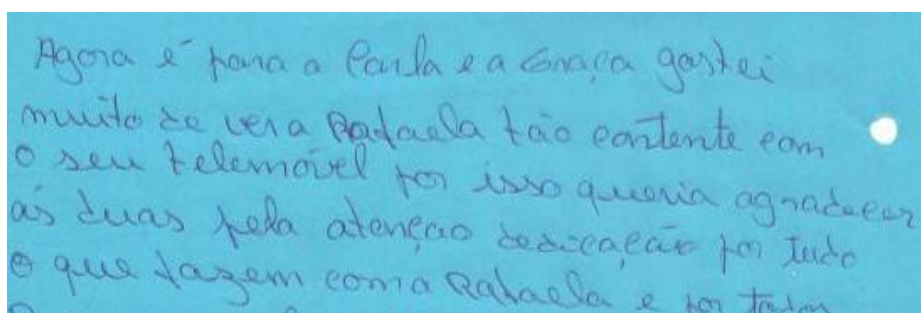 Agora é para a Paula e a Graça gostei
muito de ver a Rafaela tão contente com
o seu telemóvel por isso queria agradecer
ás duas pela atenção dedicação por tudo
o que fazem com a Rafaela e por todos